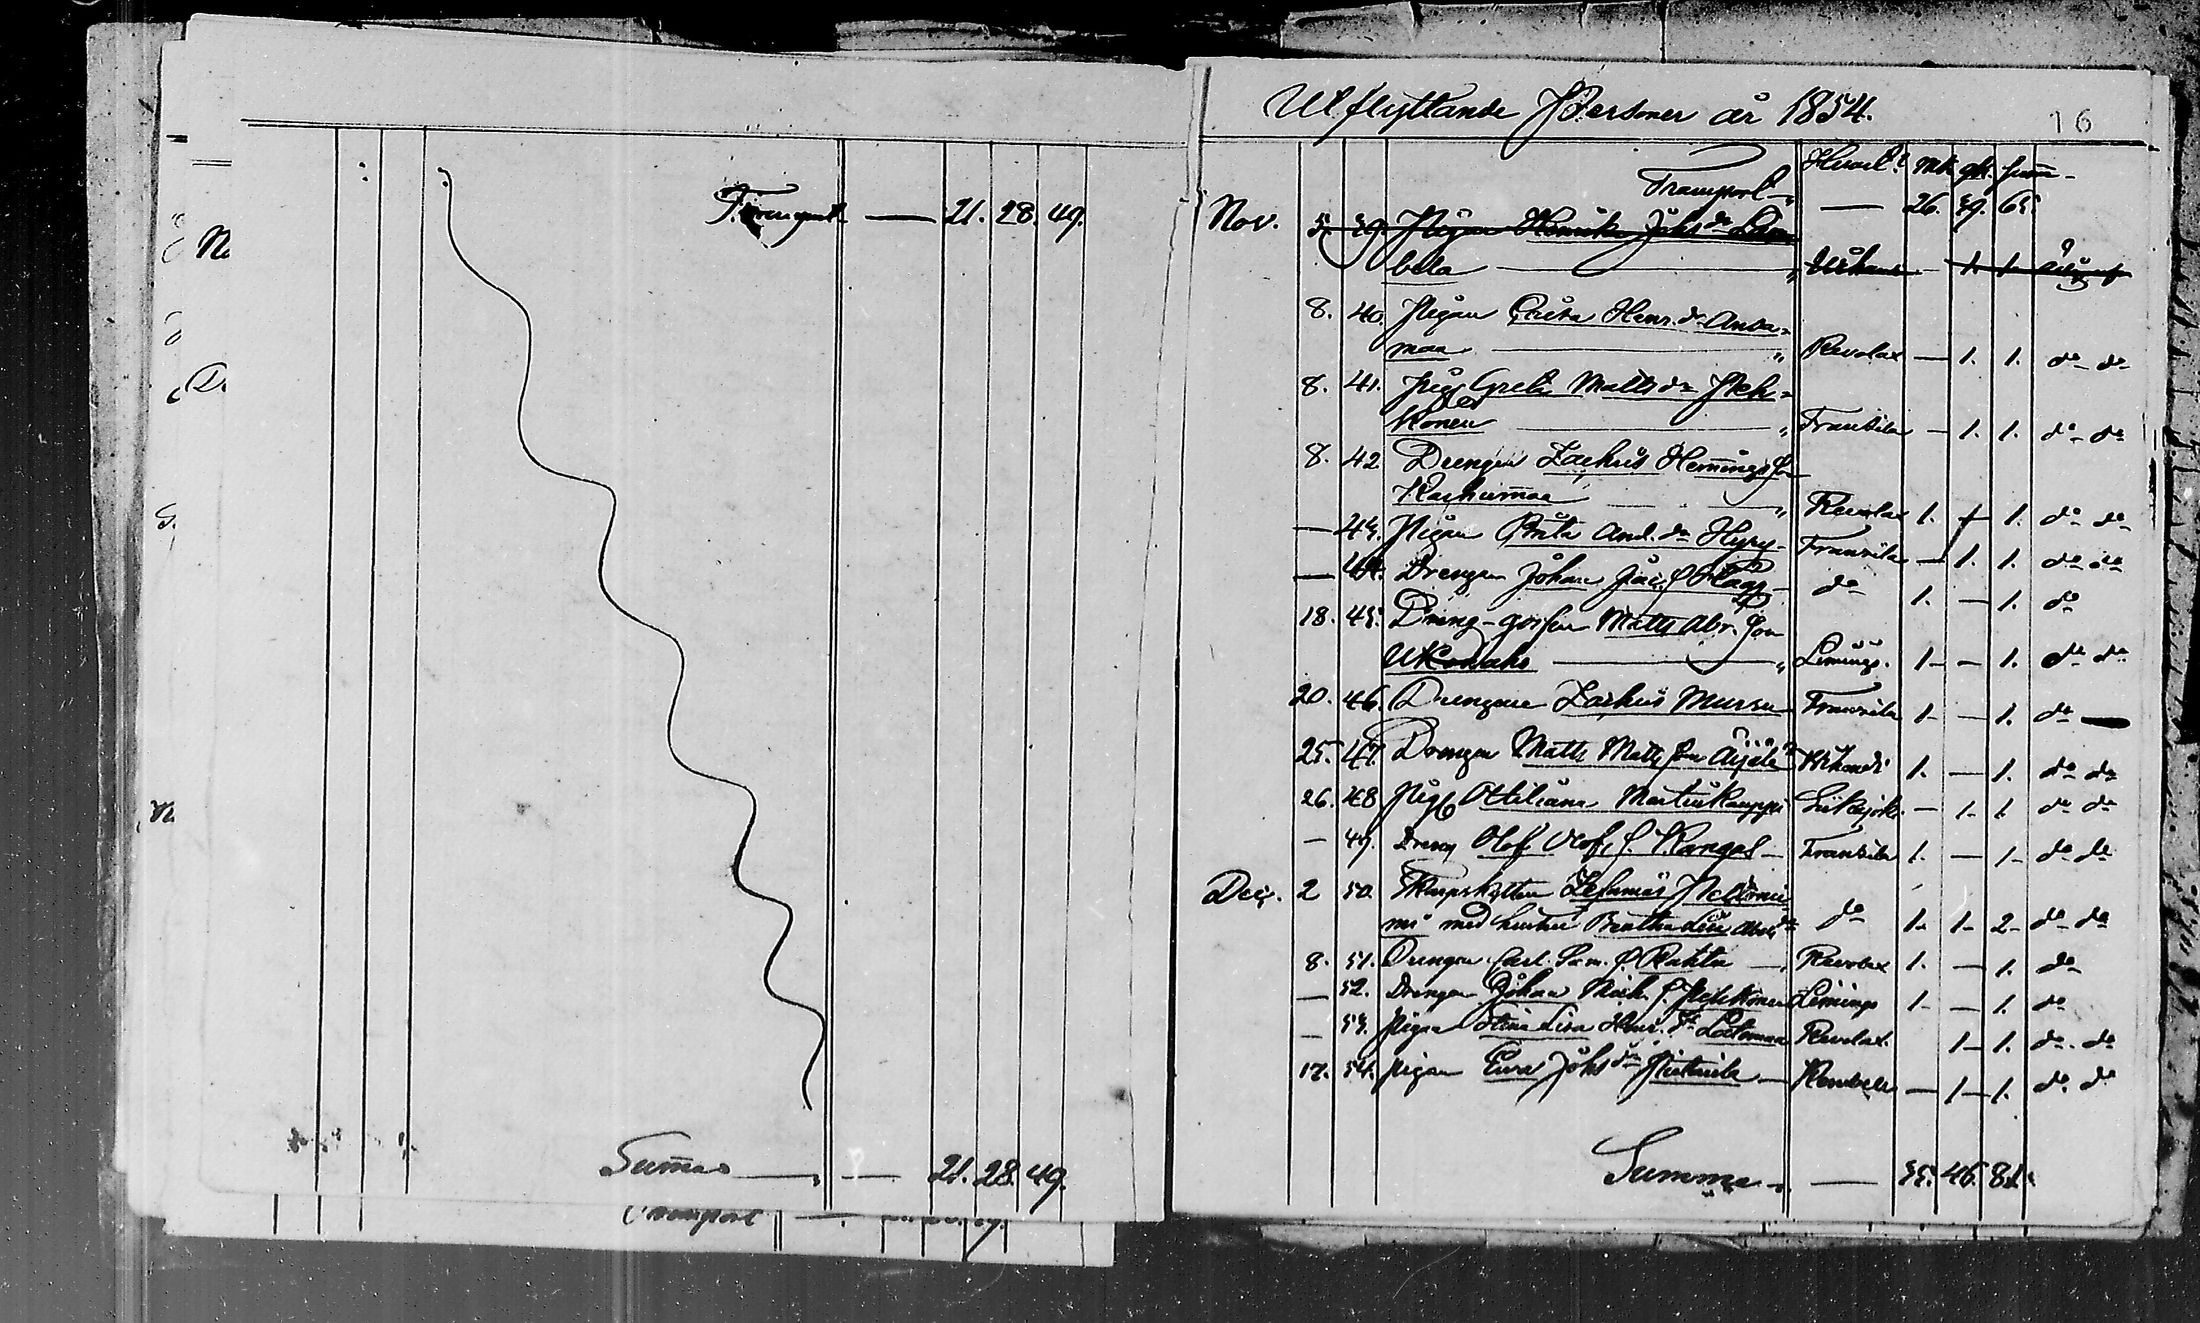 Transport — 21. 28. 49.
Summa — — 21. 28. 49.
Transport —
Utflyttande Personer år 1854.
16
Hvart? mk. qk. summ
Transport — 26. 39. 65.
Nov. 5. 39. Pigan Henrika Johs dr
bela — Uhleå — 1. 1.
8. 40. Pigan Greta Henr. dr Ansa=
maa — " Revolax — 1. 1. do do
8. 41. Pig. Greta Matts dr Peh=
konen — " Frantsila — 1. 1. do do
8. 42 Drengen Zachris Hemmings son
Karhumaa — " Revolax 1. — 1. do do
— 43. Pigan Brita And. dr Hyry — Frantsila — 1. 1. do do
— 44. Drengen Johan Jac. s. Haag — do 1. — 1. do
18. 45. Dreng-gossen Matts Abr. son
Ukonaho — " Limingo. 1 — 1. do do
20. 46. Drengen Zachris Mursu Frantsila 1 — 1. do
25. 47. Drengen Matts Matts son Äijälä 1. — 1. do do
26. 48 Pig. Ottiliana Martinkauppi Siikajoki — 1. 1 do do
— 49. Dreng Olof Olofs s. Kangas — Frantsila 1. — 1 do do
Dec. 2 50. Skarpskytten Zefanias
med hustru Beatha Lisa Abels dr do 1. 1. 2 do do
8. 51. Drengen Carl Sam. s. Rahta — Revolax 1. — 1. do
— 52. Drengen Johan Mich. s. Pehkonen Limingo 1 — 1. do
— 53. Pigan Stina Lisa Henr. dr Lotomaa Revolax. 1 1. do do
17. 54. Pigan Eva Johs dr Pietarila — Kembele — 1 — 1. do do
Summa — 35. 46. 81.